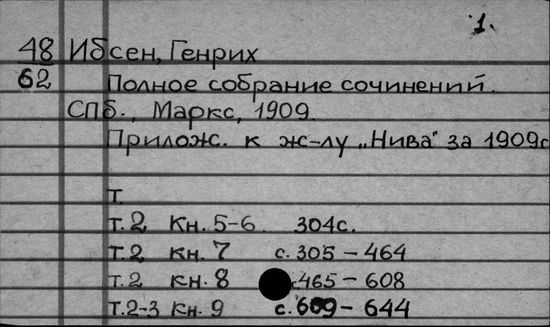 1.
48 Ибсен, Генрих
62 Полное собрание сочинений.
СПб., Маркс, 1909.
Прилож. к ж-лу „Нива" за 1909г
Т.
Т.2 Кн. 5-6 304с.
Т.2 кн. 7 с. 305 – 464
Т.2 кн. 8 с.465 – 608
Т.2-3 Кн. 9 с. 609 – 644